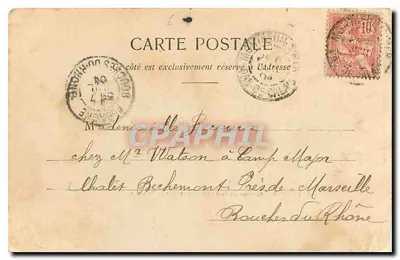 CARTE POSTALE
Ce côté est exclusivement réservé à l'adresse
BOUCHES-DU-RHONE
04
10
CPAPHIL
Mademoiselle
chez Mme Watson à Camp Major
Châlet Bechemont Près de Marseille
Bouches du Rhône